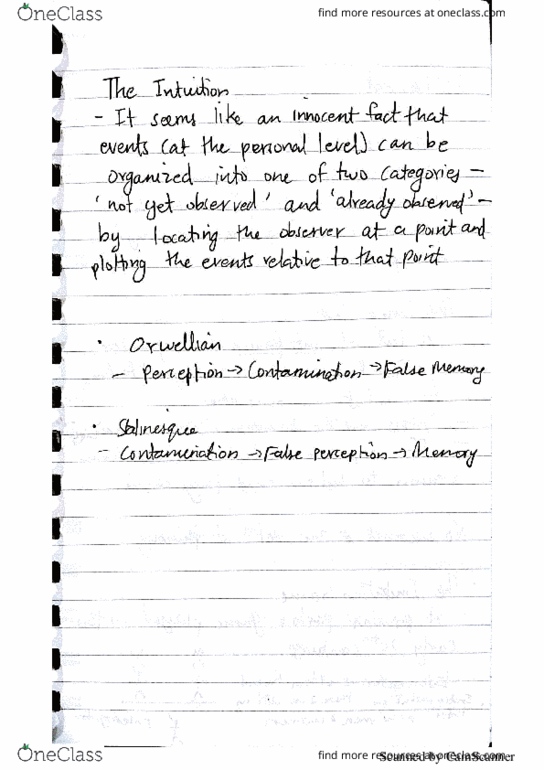 OneClass
find more resources at oneclass.com
The Intuition
- It seems like an innocent fact that
events (at the personal level) can be
organized into one of two categories -
'not yet observed' and 'already observed' -
by locating the observer at a point and
plotting the events relative to that point
• Orwellian
- Perception → Contamination → False Memory
• Stalinesque
- Contamination → False perception → Memory
OneClass
find more resources at oneclass.com
Scanned by CamScanner